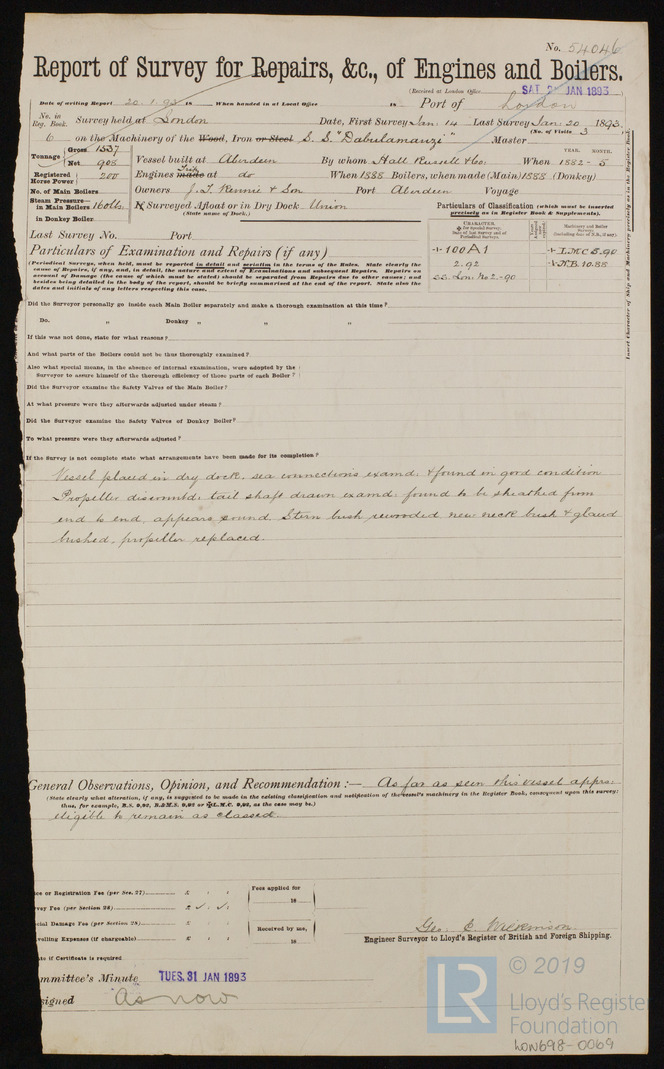 No. 54046
Report of Survey for Repairs, &c., of Engines and Boilers.
(Received at London Office SAT. 21 JAN 1893
Date of writing Report 20.1.93 18 When handed in at Local Office 18 Port of London
No. in Reg. Book. Survey held at London Date, First Survey Jan: 14 Last Survey Jan: 20 1893
(No. of Visits 3)
6 on the Machinery of the Wood, Iron or Steel S. S. "Dabulamanzi" Master
Tonnage Gross 1537
Net 908
Vessel built at Aberdeen By whom Hall Russell & Co: When 1882 - 5
YEAR. MONTH.
Registered Horse Power 200
Engines made at do When 1888 Boilers, when made (Main) 1888 (Donkey)
No. of Main Boilers
Owners J. T. Rennie & Son Port Aberdeen Voyage
Steam Pressure in Main Boilers 160 lbs
in Donkey Boiler
If Surveyed Afloat or in Dry Dock Union
(State name of Dock.)
Particulars of Classification (which must be inserted precisely as in Register Book & Supplements).
CHARACTER.
Machinery and Boiler Surveys
+100A1
2.92
SS. Lon: No 2-90
+L.M.C 5.90
+N.B. 10.88
Insert Character of Ship and Machinery precisely as in the Register Book.
Last Survey No. Port
Particulars of Examination and Repairs (if any)
(Periodical Surveys, when held, must be reported in detail and seriatim in the terms of the Rules. State clearly the
cause of Repairs, if any, and, in detail, the nature and extent of Examinations and subsequent Repairs. Repairs on
account of Damage (the cause of which must be stated) should be separated from Repairs due to other causes; and
besides being detailed in the body of the report, should be briefly summarised at the end of the report. State also the
dates and initials of any letters respecting this case.
Did the Surveyor personally go inside each Main Boiler separately and make a thorough examination at this time?
Do. „ Donkey „ „ „
If this was not done, state for what reasons?
And what parts of the Boilers could not be thus thoroughly examined?
Also what special means, in the absence of internal examination, were adopted by the
Surveyor to assure himself of the thorough efficiency of those parts of each Boiler?
Did the Surveyor examine the Safety Valves of the Main Boiler?
At what pressure were they afterwards adjusted under steam?
Did the Surveyor examine the Safety Valves of Donkey Boiler?
To what pressure were they afterwards adjusted?
If the Survey is not complete state what arrangements have been made for its completion?
Vessel placed in dry dock, sea connections examd: & found in good condition
Propeller discountd: tail shaft drawn examd: found to be sheathed from
end to end, appears sound. Stern bush rewooded new neck bush & gland
bushed, propeller replaced.
General Observations, Opinion, and Recommendation :— As far as seen this vessel apprs:
(State clearly what alteration, if any, is suggested to be made in the existing classification and notification of the vessel's machinery in the Register Book, consequent upon this survey;
thus, for example, B.S. 9,92, B.&M.S. 9,92 or L.M.C. 9,92, as the case may be.)
eligible to remain as classed.
ice or Registration Fee (per Sec. 27) £ : :
vey Fee (per Section 28) £ : :
cial Damage Fee (per Section 28) £ : :
velling Expenses (if chargeable) £ : :
Fees applied for
18
Received by me,
18
Geo. E. Wilkinson
Engineer Surveyor to Lloyd's Register of British and Foreign Shipping.
ate if Certificate is required
ommittee's Minute TUES. 31 JAN 1893
signed As now
LR
© 2019
Lloyd's Register
Foundation
LON698-0069